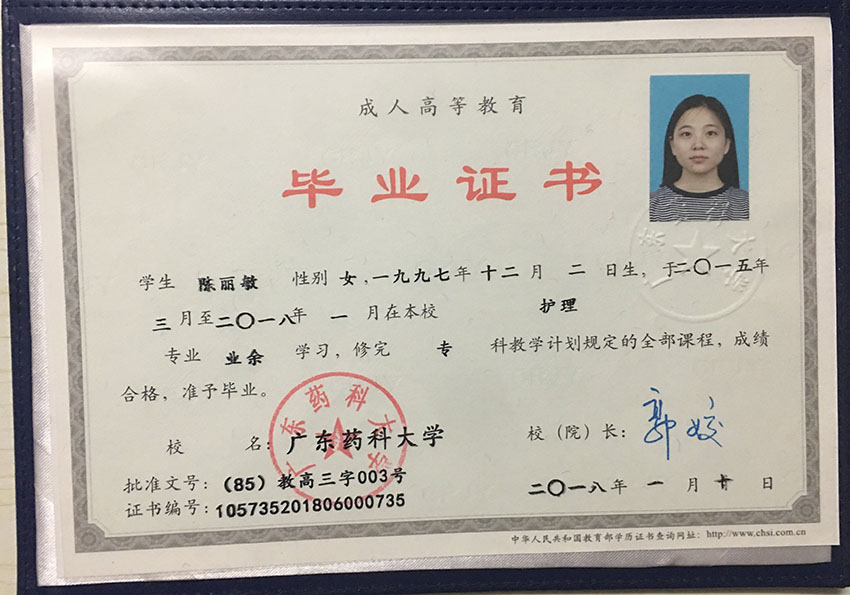 成人高等教育
毕业证书
学生 陈丽敏 性别 女,一九九七年 十二 月 二 日生,于二〇一五年
三 月至二〇一八年 一 月在本校 护理
专业 业余 学习,修完 专 科教学计划规定的全部课程,成绩
合格,准予毕业。
广东药科大学
校 名:广东药科大学 校(院)长: 郭姣
批准文号:(85)教高三字003号
证书编号:105735201806000735
二〇一八年 一 月 十 日
中华人民共和国教育部学历证书查询网址:http://www.chsi.com.cn